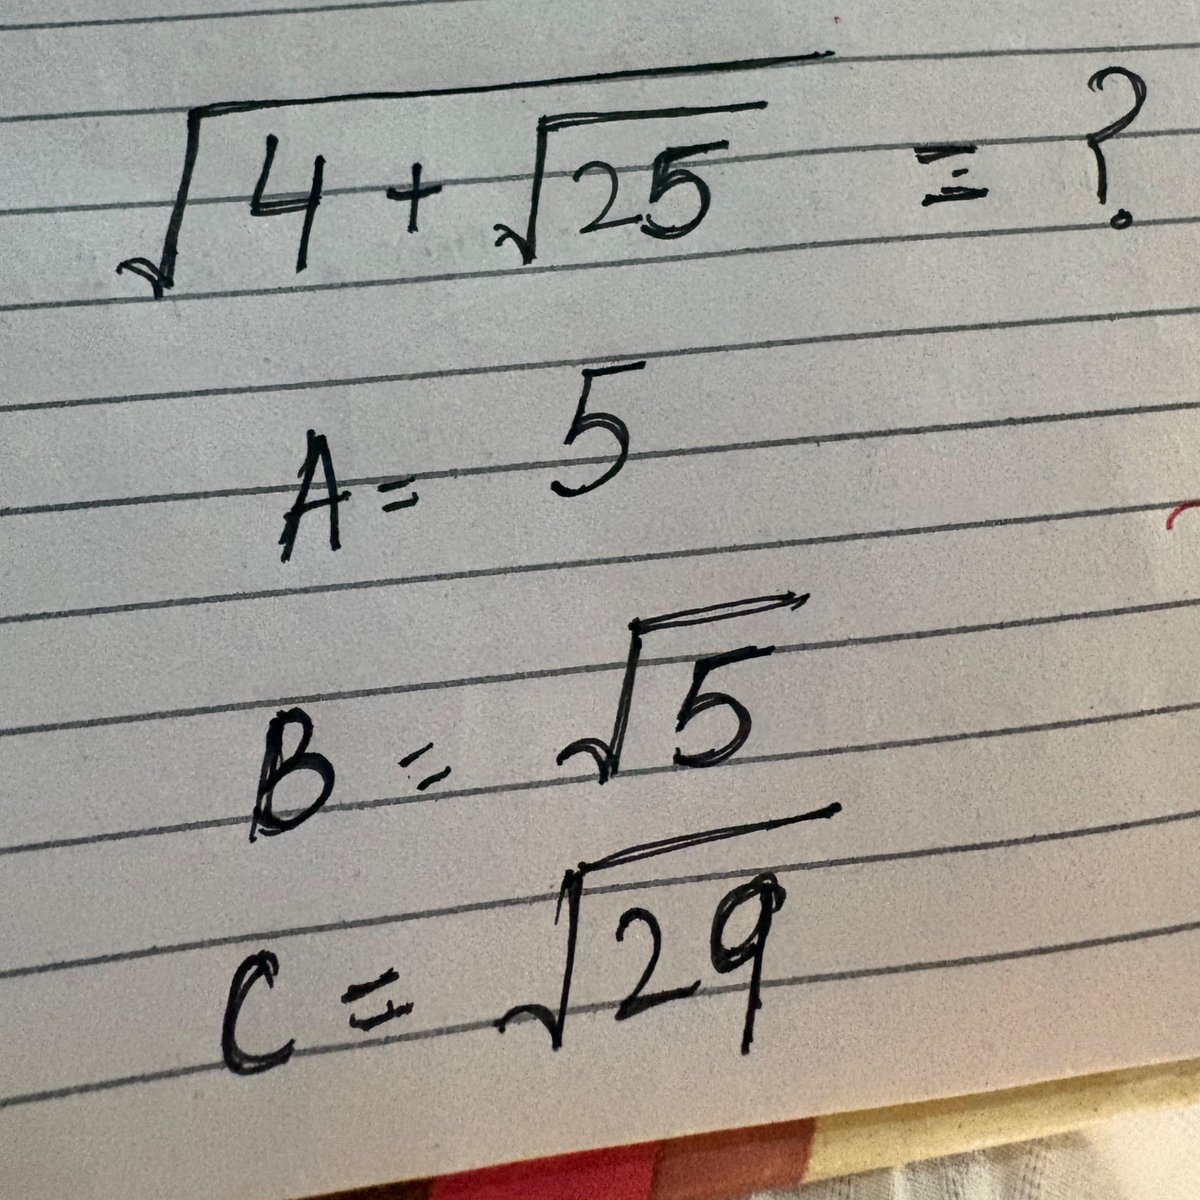 √(4 + √25) = ?
A = 5
B = √5
C = √29